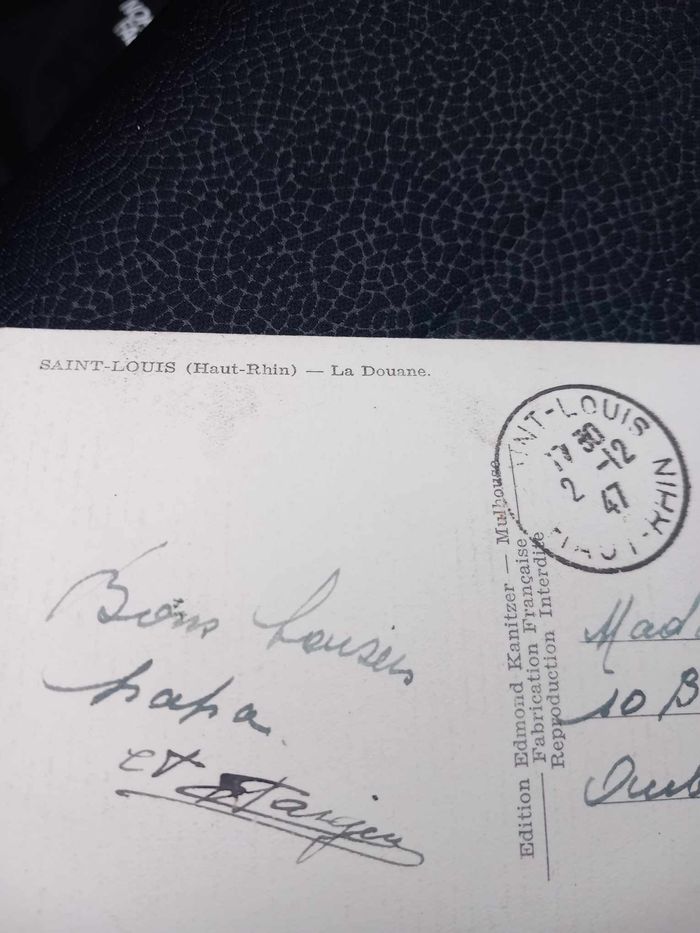 SAINT-LOUIS (Haut-Rhin) — La Douane.
INT-LOUIS
17 30
2 -12
47
HAUT-RHIN
Edition Edmond Kanitzer — Mulhouse
Fabrication Française
Reproduction Interdite
Bons baisers
papa
et
Mad
10 B